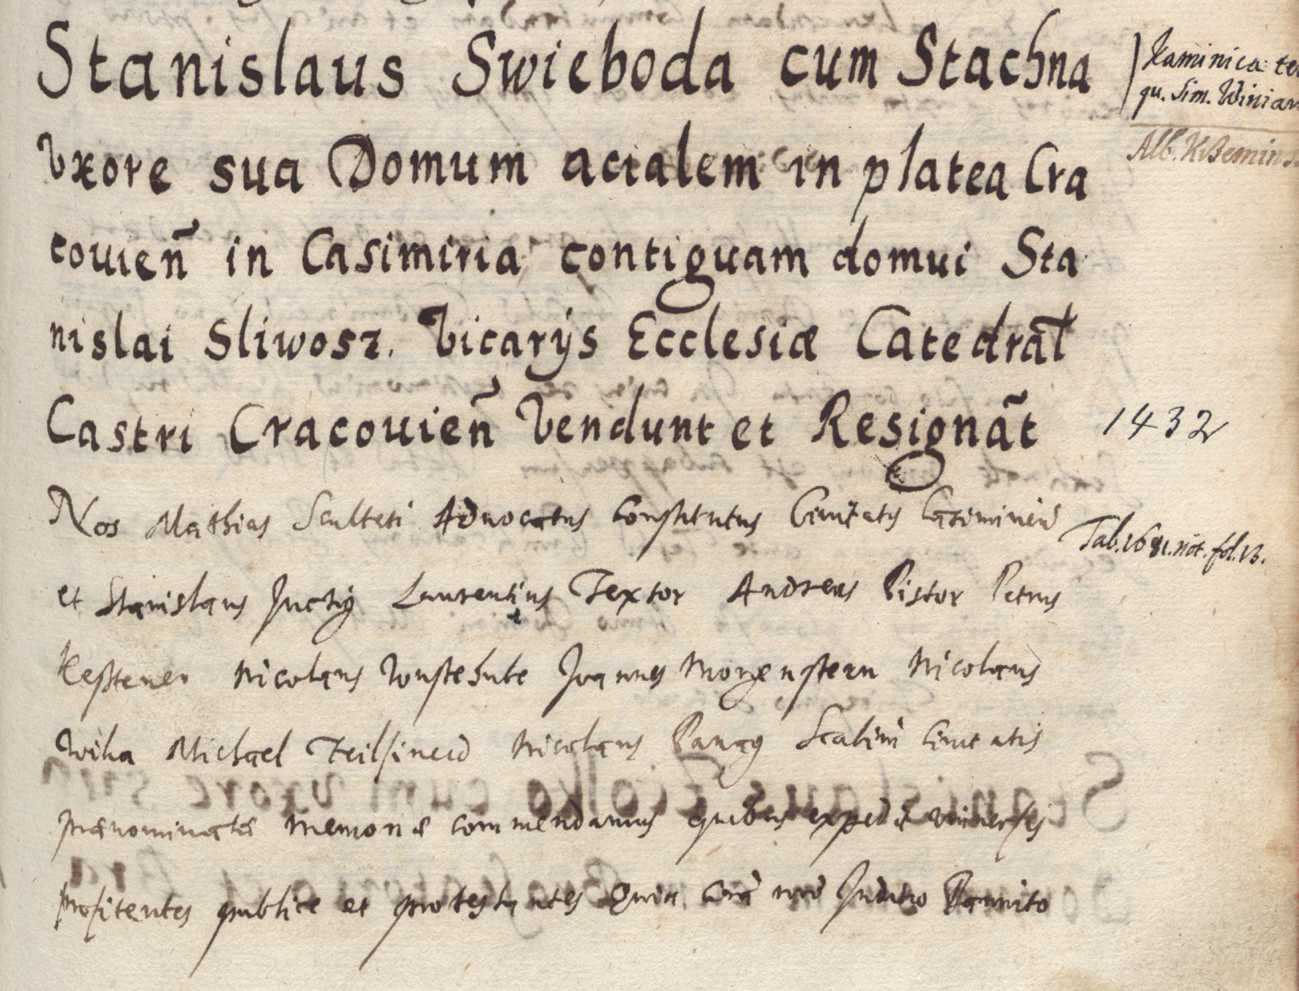 Stanislaus Swieboda cum Stachna
Vxore sua Domum acialem in platea Cra
couien̄ in Casimiria contiguam domui Sta
nislai Sliwosz. Vicarÿs Ecclesiæ Catedral̄
Castri Cracouien̄ Vendunt et Resignāt
Kaminica
qu. Sim. Winiar
Alb.
1432
Nos Mathias Sculteti Aduocatus Constitutus Ciuitatis Casimirien̄
Tab. not. fol. 13.
et Stanislaus Laurentius Textor Andreas Pistor Petrus
Kestener Nicolaus Joannes Morgenstern Nicolaus
Wilia Michael Nicolaus Scabini Ciuitatis
prænominatæ Memoriæ commendamus quibus expedit vniuersis
profitentes publice et protestantes Quia Iuditio Bannito